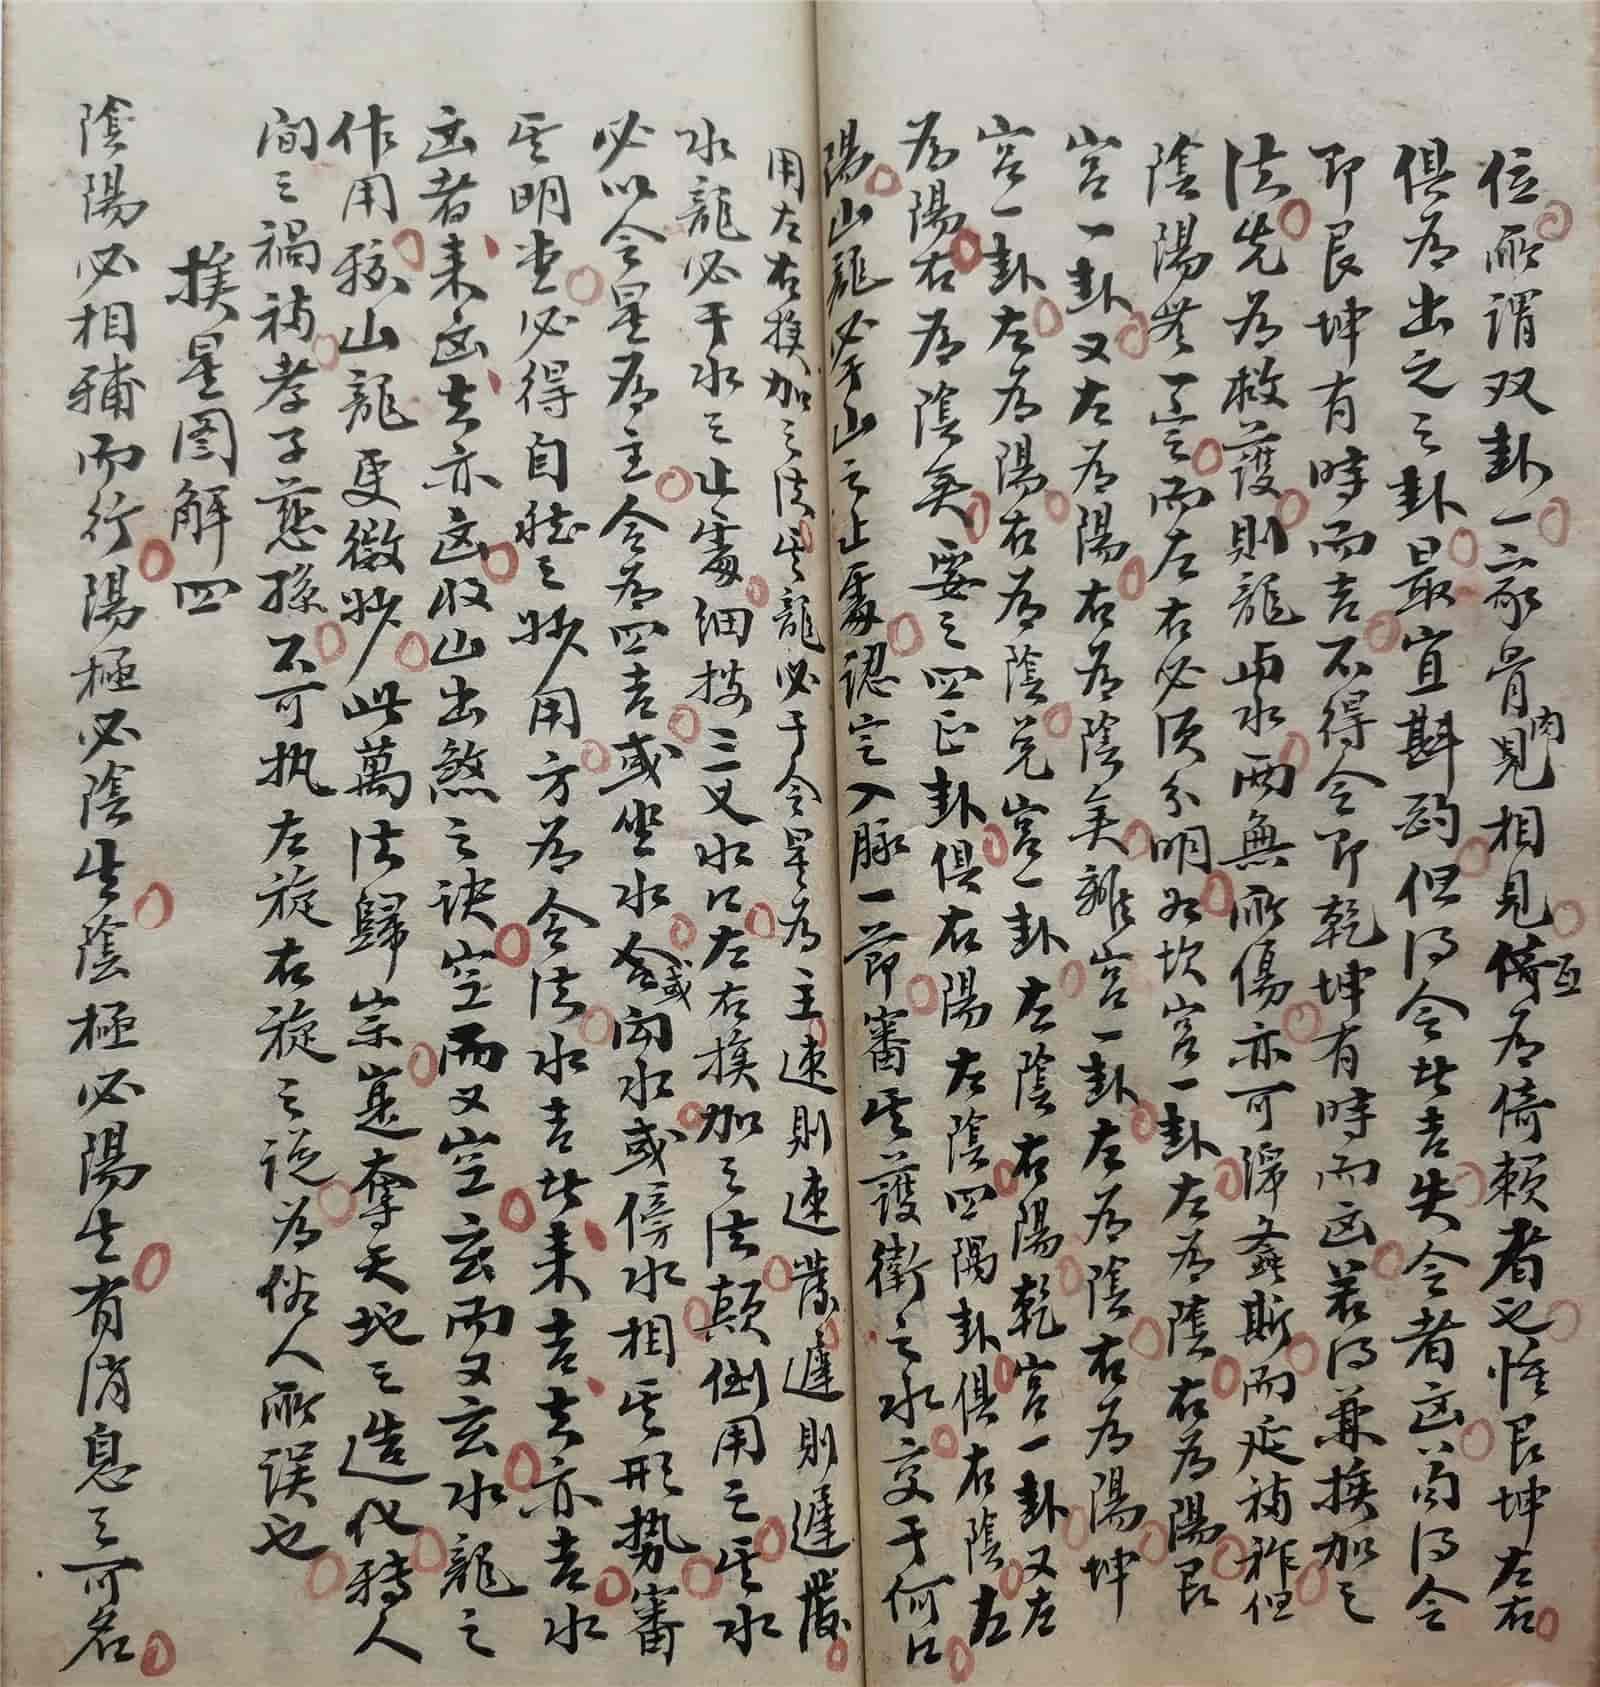 位所謂双卦一家骨肉見相見互倚為倚賴者也惟艮坤左右
俱為出之之卦最宜斟酌但得令皆吉失令者凶苟得令
即艮坤有時而吉不得令即乾坤有時而凶若得兼挨加之
法先為救護則龍與水兩無所傷亦可譁螽斯而延福祚但
陰陽無一定而左右必須分明如坎宮一卦左為陰右為陽艮
宮一卦又左為陽右為陰矣離宮一卦左為陰右為陽坤
宮一卦左為陽右為陰兌宮一卦左陰右陽乾宮一卦又左
為陽右為陰矣要之四正卦俱右陽左陰四隅卦俱右陰左
陽山龍必于山之止處認定入脉一節審其護衛之水交于何口
用左右挨加之法其龍必于令星為主速則速發遲則遲發
水龍必于水之止處細按三叉水口左右挨加之法顛倒用之其水
必以令星為主令為四吉或坐水或合向水或傍水相其形势審
其明堂必得自然之妙用方為令法水吉皆来吉去亦吉水
凶者来凶去亦凶收山出煞之诀空而又空玄而又玄水龍之
作用較山龍更微妙此萬法歸崇寔奪天地之造化轉人
间之禍福孝子慈孫不可执左旋右旋之说為俗人所误也
挨星图解四
陰陽必相輔而行陽極必陰生陰極必陽生有消息之可名